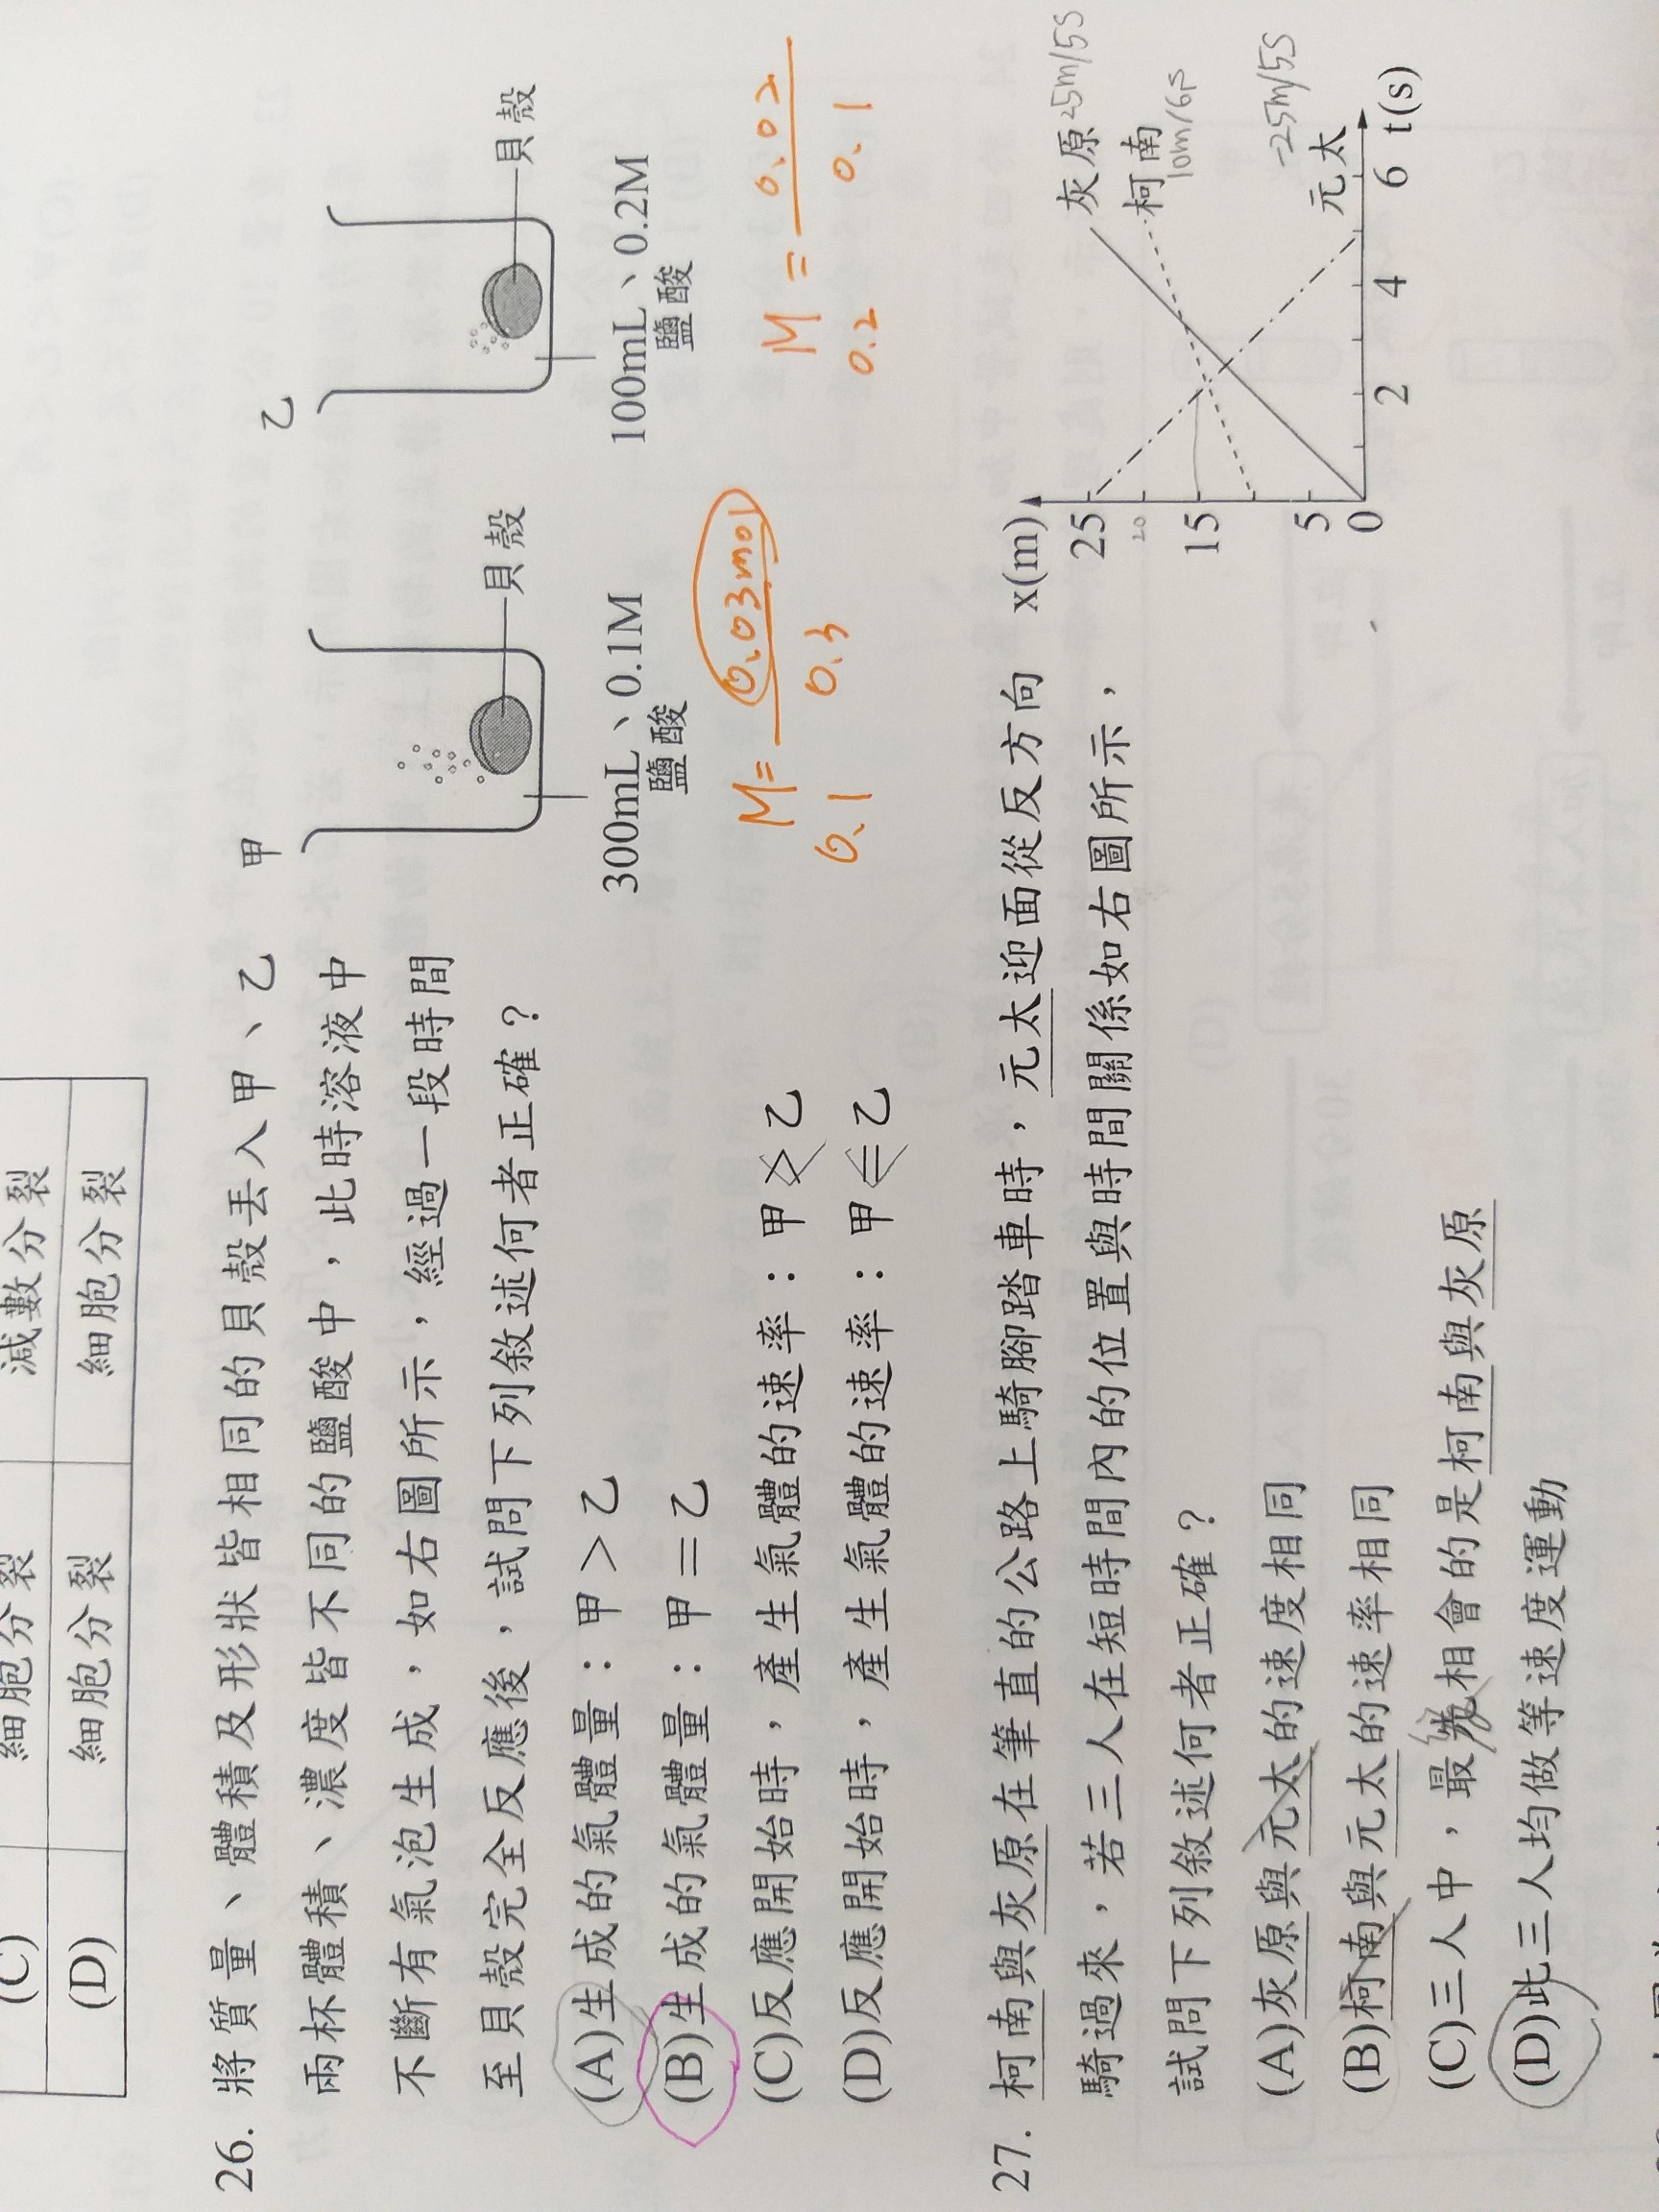 (C)
細胞分裂
減數分裂
(D)
細胞分裂
細胞分裂
26. 將質量、體積及形狀皆相同的貝殼丟入甲、乙
兩杯體積、濃度皆不同的鹽酸中，此時溶液中
不斷有氣泡生成，如右圖所示，經過一段時間
至貝殼完全反應後，試問下列敘述何者正確？
(A)生成的氣體量：甲＞乙
(B)生成的氣體量：甲＝乙
(C)反應開始時，產生氣體的速率：甲＞乙
(D)反應開始時，產生氣體的速率：甲＝乙
甲
貝殼
300mL、0.1M
鹽酸
M= 0.03mol
0.1 0.3
乙
貝殼
100mL、0.2M
鹽酸
M = 0.02
0.2 0.1
27. 柯南與灰原在筆直的公路上騎腳踏車時，元太迎面從反方向
騎過來，若三人在短時間內的位置與時間關係如右圖所示，
試問下列敘述何者正確？
(A)灰原與元太的速度相同
(B)柯南與元太的速率相同
(C)三人中，最相會的是柯南與灰原
(D)此三人均做等速度運動
x(m)
25
20
15
5
0
2
4
6
t(s)
灰原 25m/5s
柯南
10m/6s
-25m/5s
元太